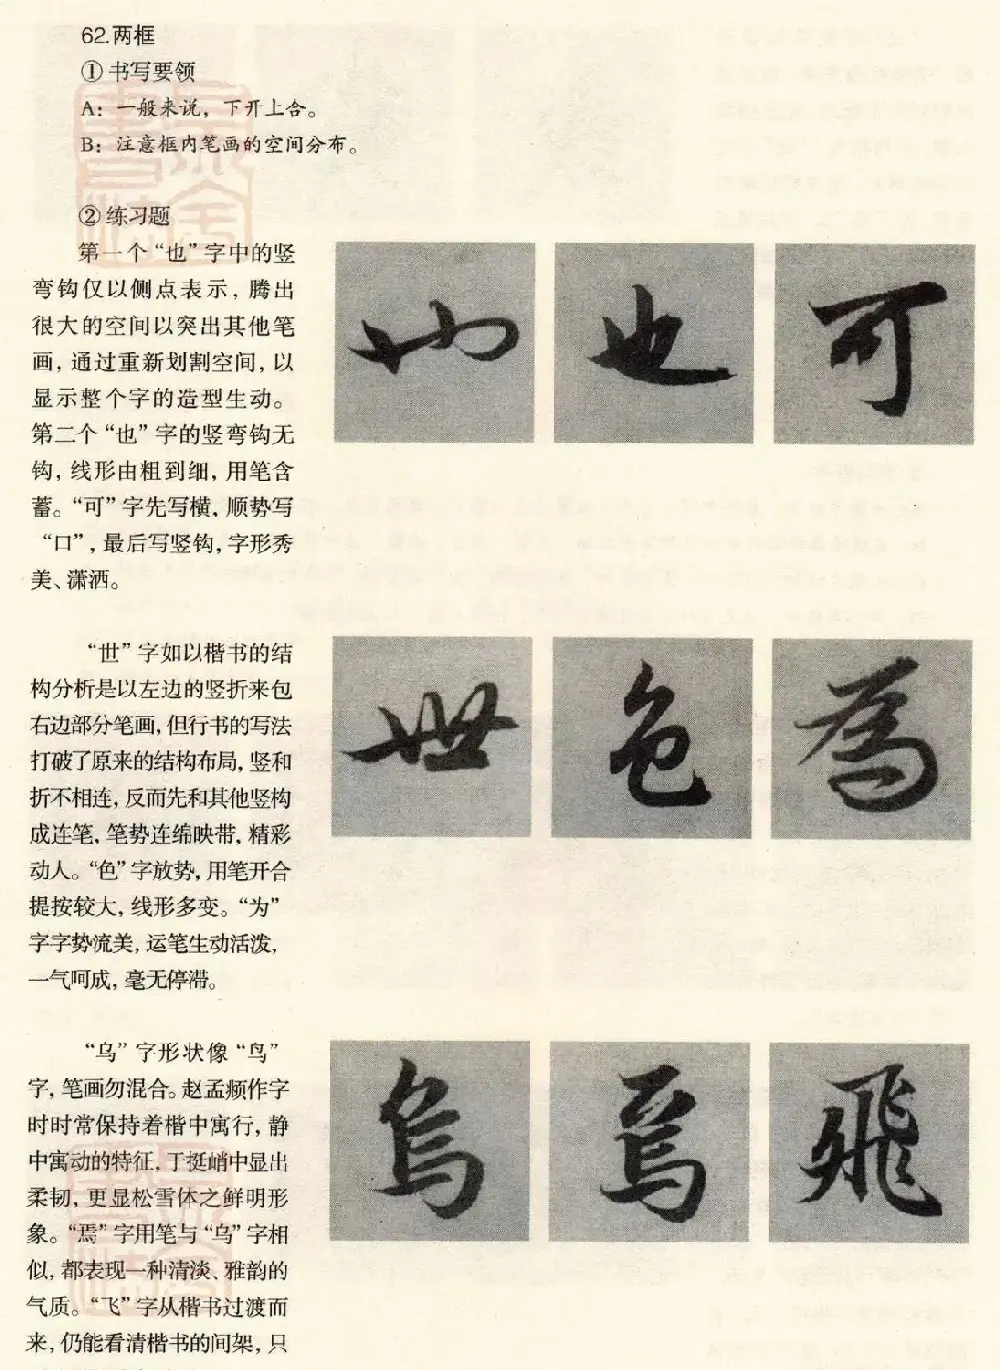 62.两框
①书写要领
A：一般来说，下开上合。
B：注意框内笔画的空间分布。
②练习题
第一个“也”字中的竖
弯钩仅以侧点表示，腾出
很大的空间以突出其他笔
画，通过重新划割空间，以
显示整个字的造型生动。
第二个“也”字的竖弯钩无
钩，线形由粗到细，用笔含
蓄。“可”字先写横，顺势写
“口”，最后写竖钩，字形秀
美、潇洒。
也 也 可
“世”字如以楷书的结
构分析是以左边的竖折来包
右边部分笔画，但行书的写法
打破了原来的结构布局，竖和
折不相连，反而先和其他竖构
成连笔，笔势连绵映带，精彩
动人。“色”字放势，用笔开合
提按较大，线形多变。“为”
字字势流美，运笔生动活泼，
一气呵成，毫无停滞。
世 色 為
“乌”字形状像“鸟”
字，笔画勿混合。赵孟頫作字
时时常保持着楷中寓行，静
中寓动的特征，于挺峭中显出
柔韧，更显松雪体之鲜明形
象。“焉”字用笔与“乌”字相
似，都表现一种清淡、雅韵的
气质。“飞”字从楷书过渡而
来，仍能看清楷书的间架，只
烏 焉 飛